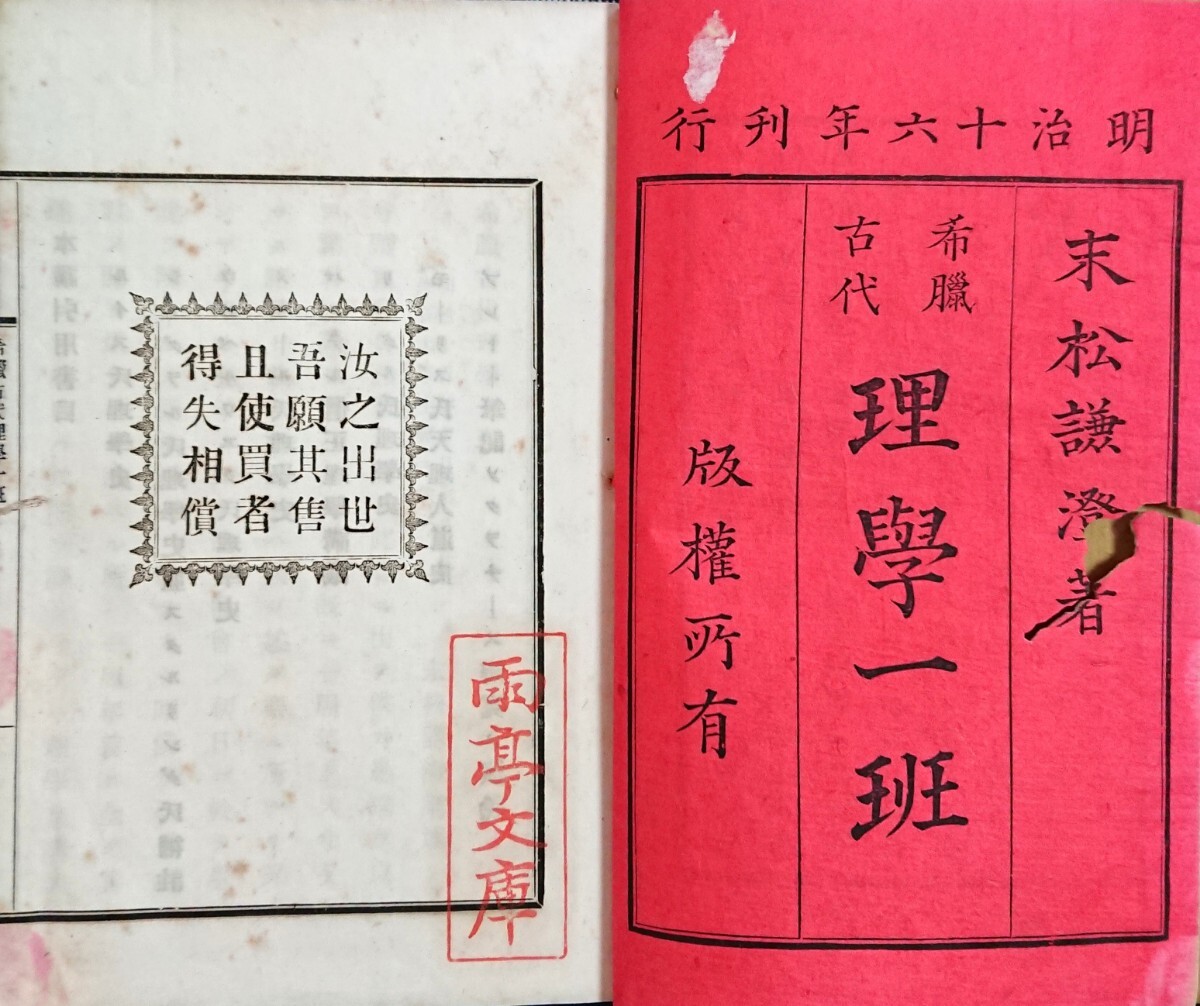 明治十六年刊行
末松謙澄著
希臘
古代
理學一班
版權所有
汝之出世
吾願其售
且使買者
得失相償
雨亭文庫